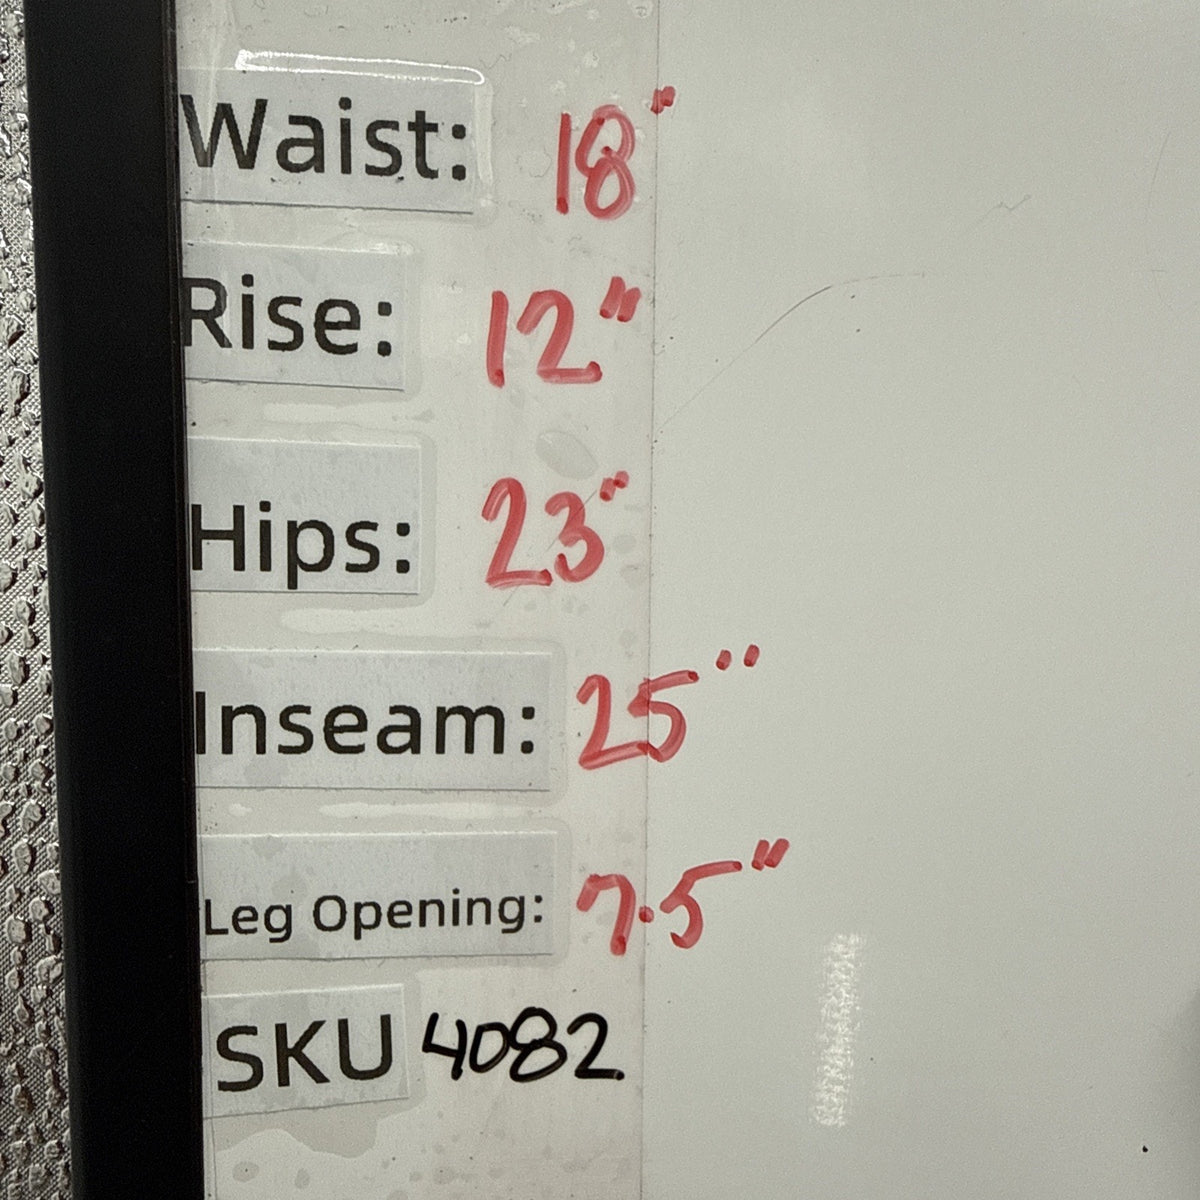 Waist: 18"
Rise: 12"
Hips: 23"
Inseam: 25"
Leg Opening: 7.5"
SKU 4082